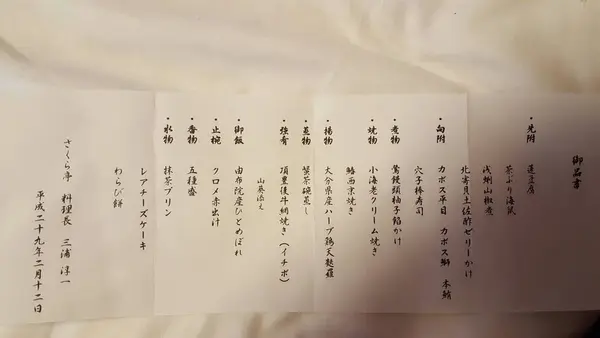 御品書
・先附 蓮豆腐
茶ぶり海鼠
浅利山椒煮
北寄貝土佐酢ゼリーかけ
穴子棒寿司
・向附 カボス平目 カボス鰤 本鮪
・煮物 鶯饅頭柚子餡かけ
・焼物 小海老クリーム焼き
鰆西京焼き
・揚物 大分県産ハーブ鶏天麩羅
・蒸物 蟹茶碗蒸し
・強肴 頂豊後牛網焼き(イチボ)
山葵添え
・御飯 由布院産ひとめぼれ
・止椀 クロメ赤出汁
・香物 五種盛
・水物 抹茶プリン
レアチーズケーキ
わらび餅
さくら亭 料理長 三浦 淳一
平成二十九年二月十二日